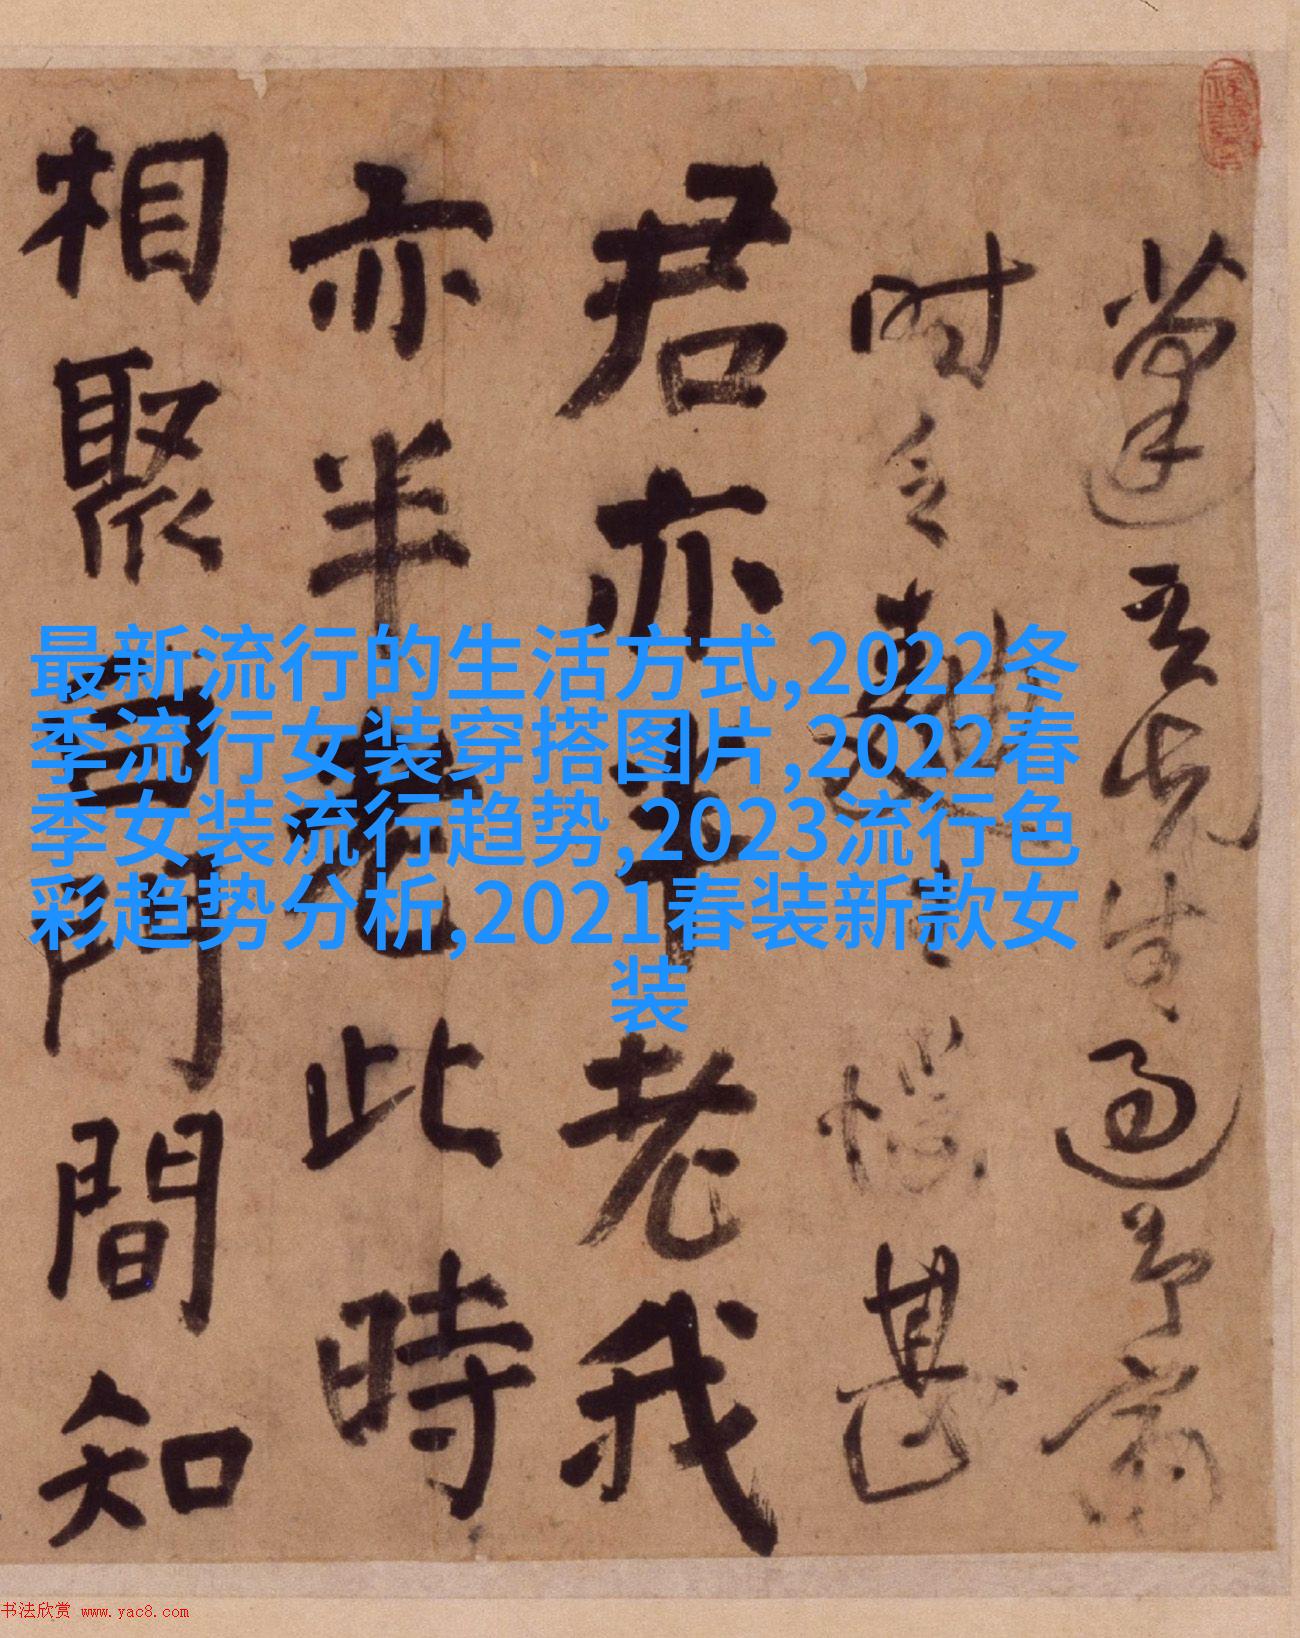 最新流行的生活方式,2022冬
季流行女装穿搭图片,2022春
季女装流行趋势,2023流行色
彩趋势分析,2021春装新款女
装
吾先生過予齋
时立甚
君亦半老我
亦半老此時
相聚白門間知
书法欣赏 www.yac8.com